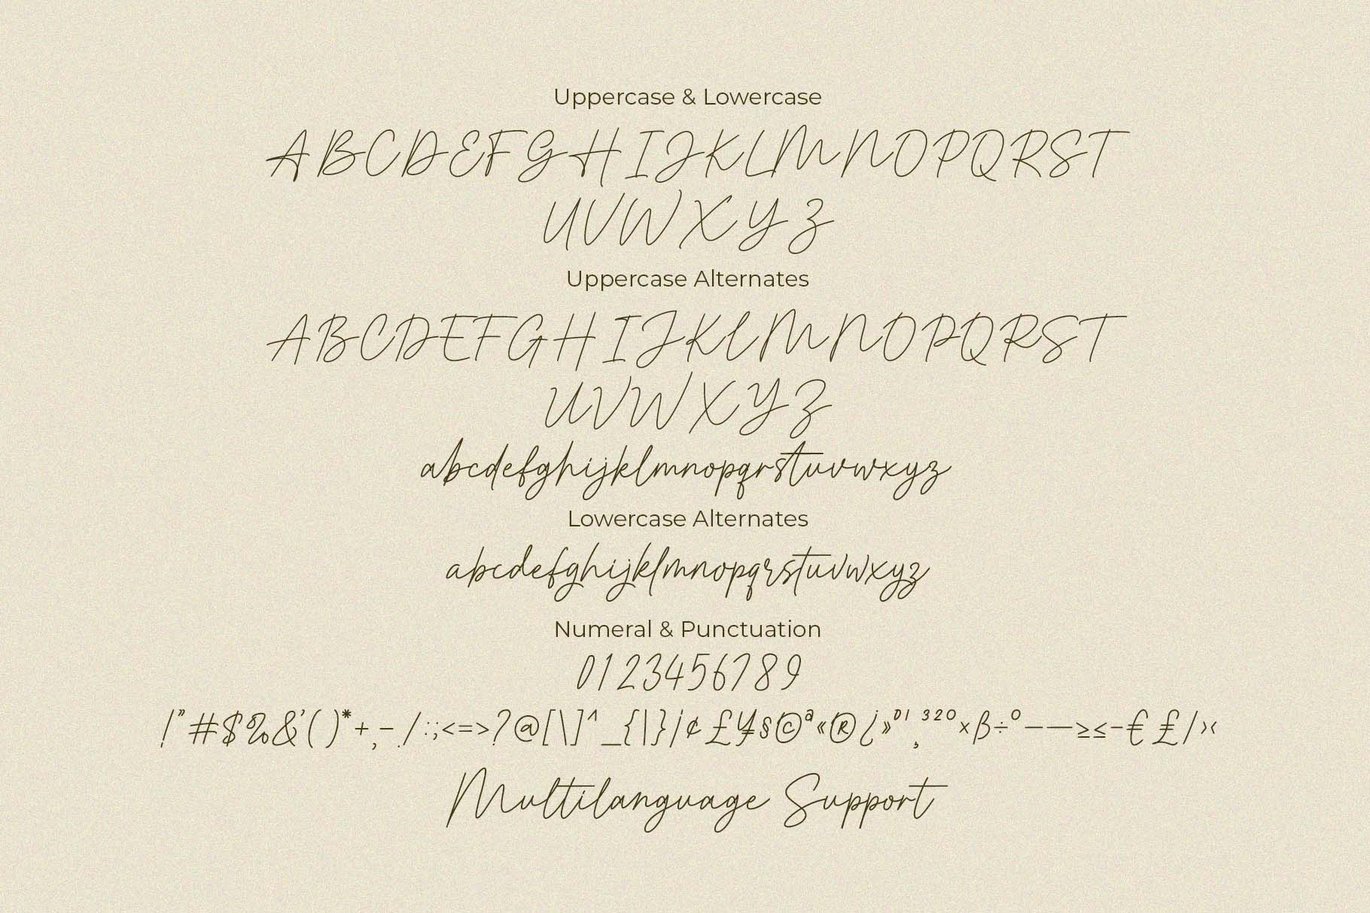 Uppercase & Lowercase
ABCDEFGHIJKLMNOPQRST
UVWXYZ
Uppercase Alternates
ABCDEFGHIJKLMNOPQRST
UVWXYZ
abcdefghijklmnopqrstuvwxyz
Lowercase Alternates
abcdefghijklmnopqrstuvwxyz
Numeral & Punctuation
0123456789
!"#$%&'()*+,-./:;<=>?@[\]^_{|}¡¢£¥§©ª«®¿»º¹¸³²º×ß÷°–—≥≤-€₤/›‹
Multilanguage Support